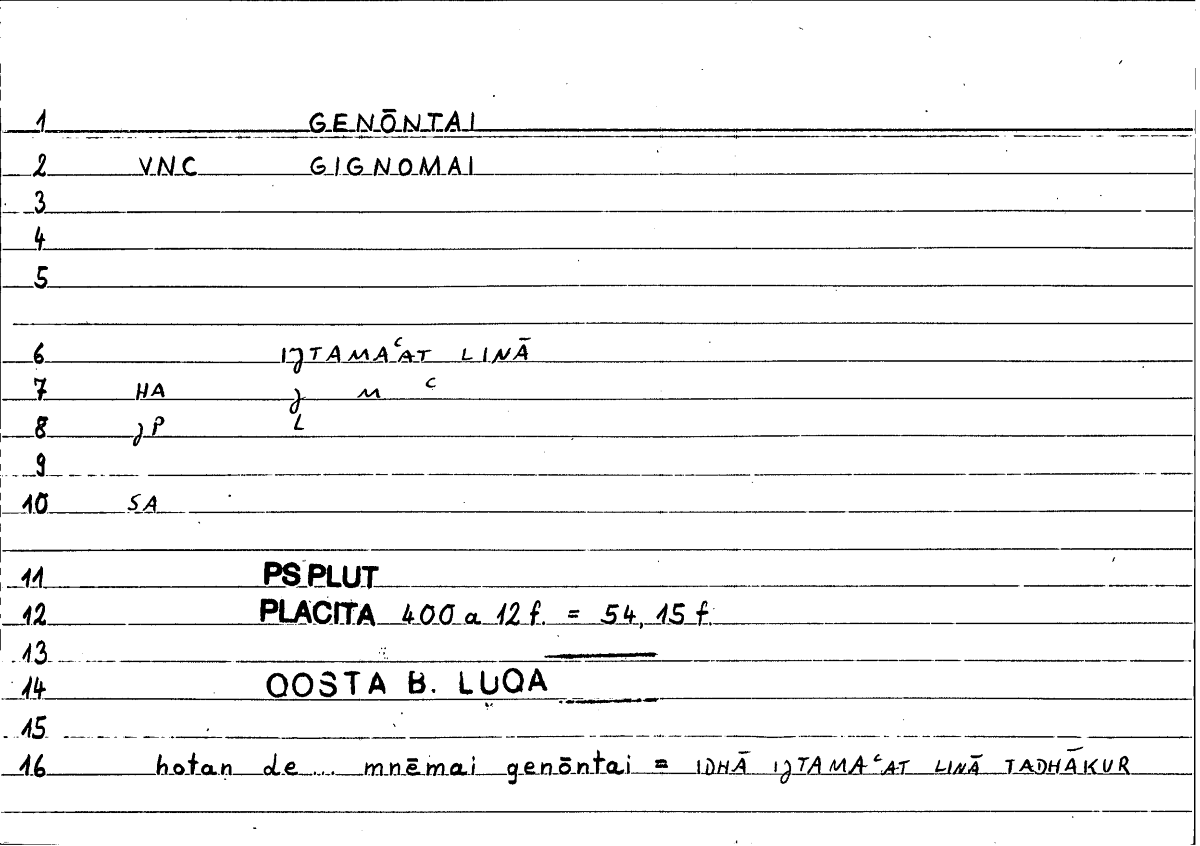 1 GENŌNTAI
2 VNC GIGNOMAI
3
4
5
6 IJTAMAᶜAT LINĀ
7 HA J M ᶜ
8 JP L
9
10 SA
11 PS PLUT
12 PLACITA 400 a 12 f. = 54, 15 f.
13
14 QOSTA B. LUQA
15
16 hotan de ... mnēmai genōntai = IDHĀ IJTAMAᶜAT LINĀ TADHĀKUR